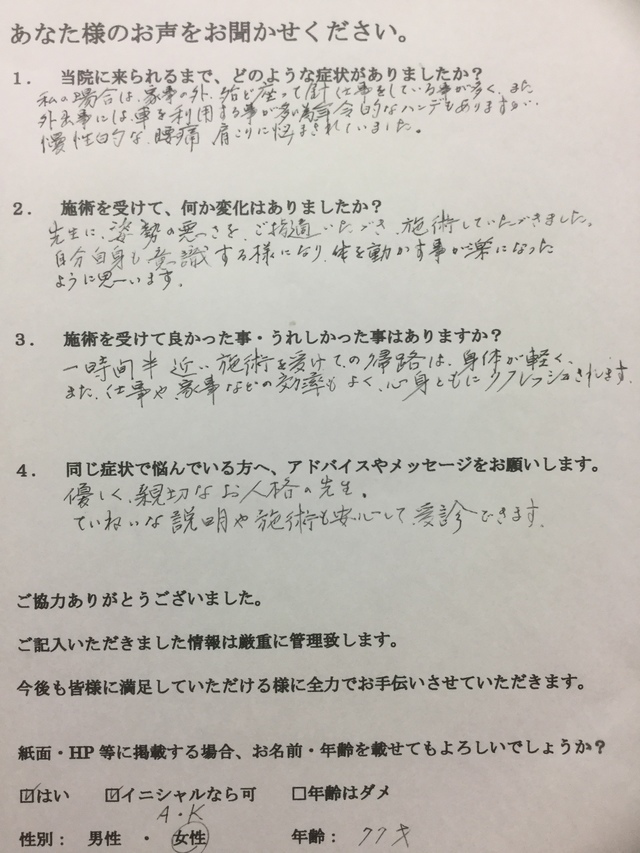 あなた様のお声をお聞かせください。
1. 当院に来られるまで、どのような症状がありましたか?
私の場合は、家事の外、殆ど座って針仕事をしている事が多く、また
外出事には、車を利用する事が多い為年令的なハンデもありますが、
慢性的な、腰痛 肩こりに悩まされていました。
2. 施術を受けて、何か変化はありましたか?
先生に、姿勢の悪さを、ご指適いただき、施術していただきました。
自分自身も意識する様になり、体を動かす事が楽になった
ように思います。
3. 施術を受けて良かった事・うれしかった事はありますか?
一時間半近い施術を受けての帰路は、身体が軽く、
また、仕事や、家事などの効率もよく、心身ともにリフレッシュされます。
4. 同じ症状で悩んでいる方へ、アドバイスやメッセージをお願いします。
優しく、親切なお人格の先生。
ていねいな説明や施術も安心して、受診できます。
ご協力ありがとうございました。
ご記入いただきました情報は厳重に管理致します。
今後も皆様に満足していただける様に全力でお手伝いさせていただきます。
紙面・HP 等に掲載する場合、お名前・年齢を載せてもよろしいでしょうか?
☑はい ☑イニシャルなら可 □年齢はダメ
A・K
性別: 男性 ・ 女性 年齢: 77才